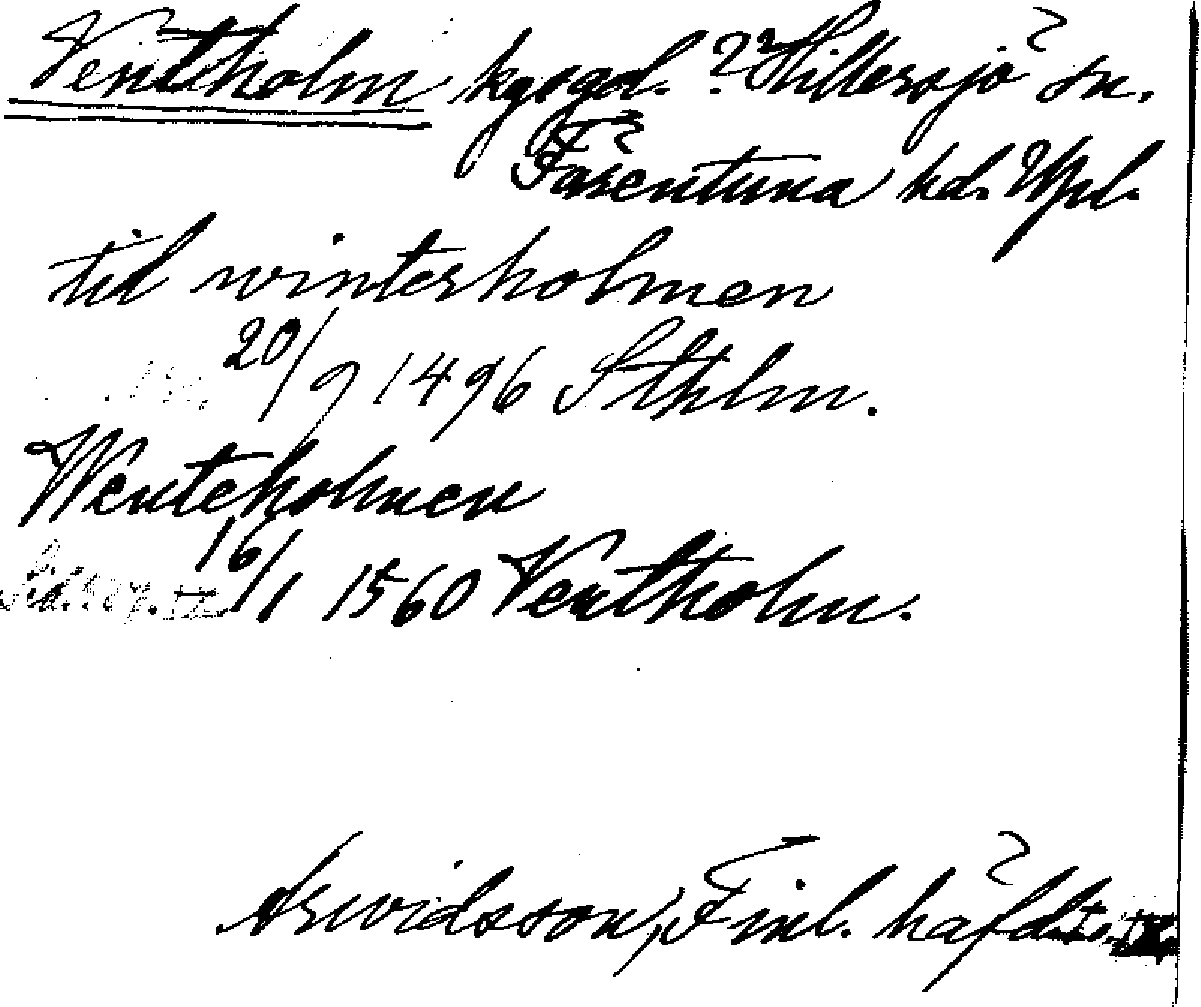 Ventholm kgsgd. ?? Hillersjö sn.
Färentuna hd. Upl.
til winterholmen
20/9 1496 Sthlm.
Wenteholmen
16/1 1560 Ventholm.
Arwidsson, Finl. häfd.